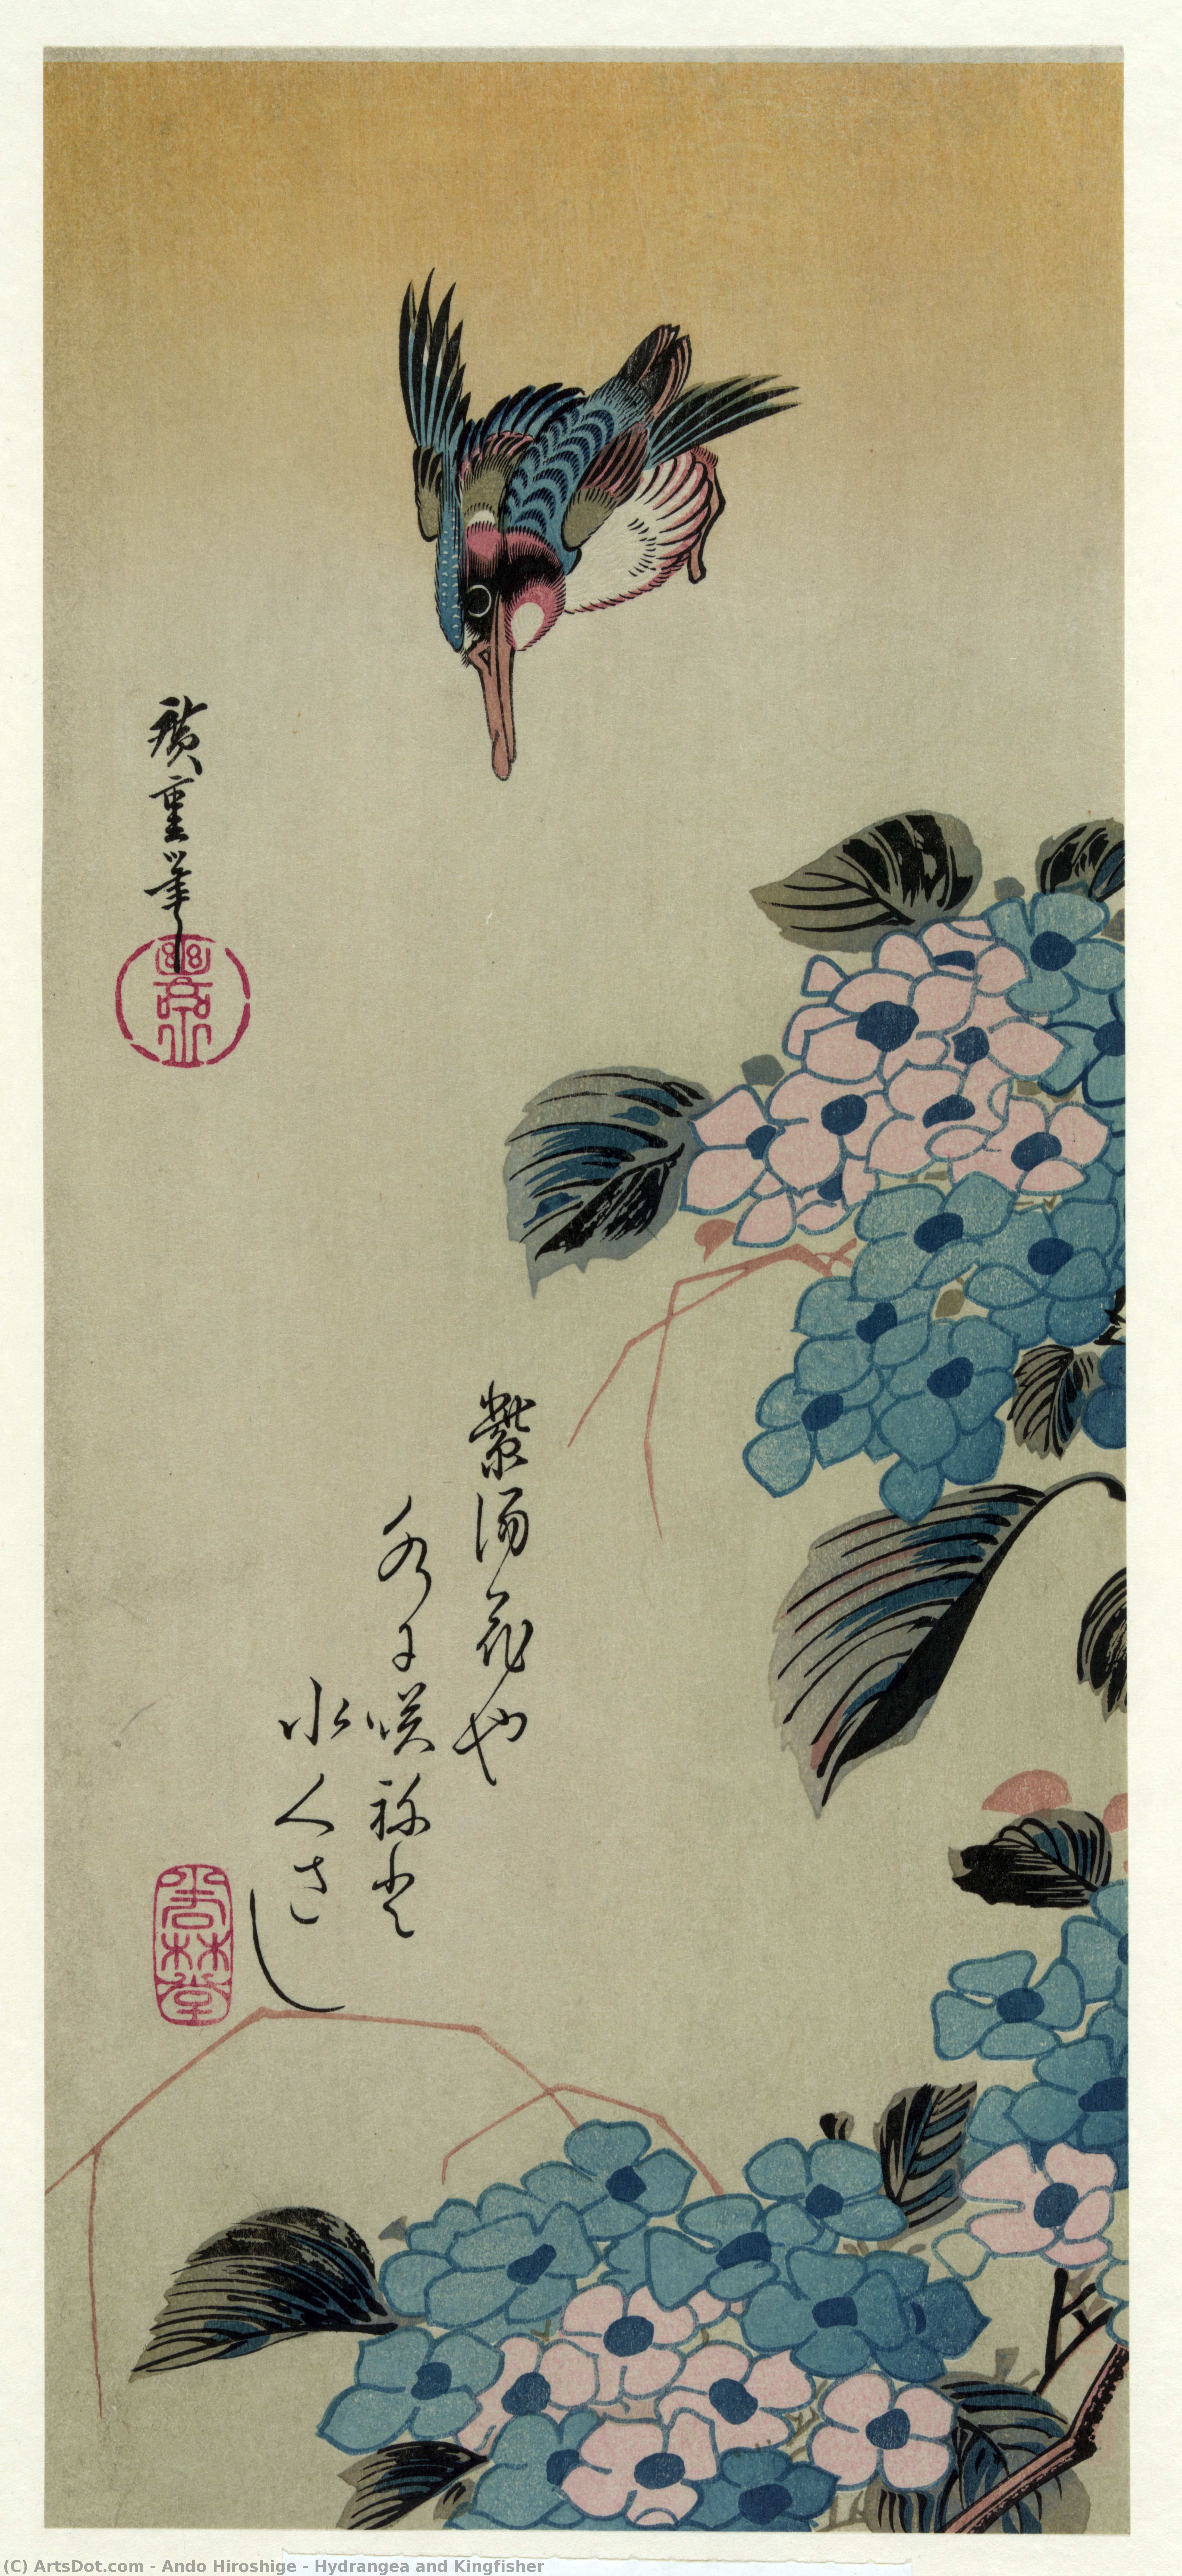 廣重筆
紫陽花や
水に咲ねと
水くさし
若林堂
(C) ArtsDot.com - Ando Hiroshige - Hydrangea and Kingfisher